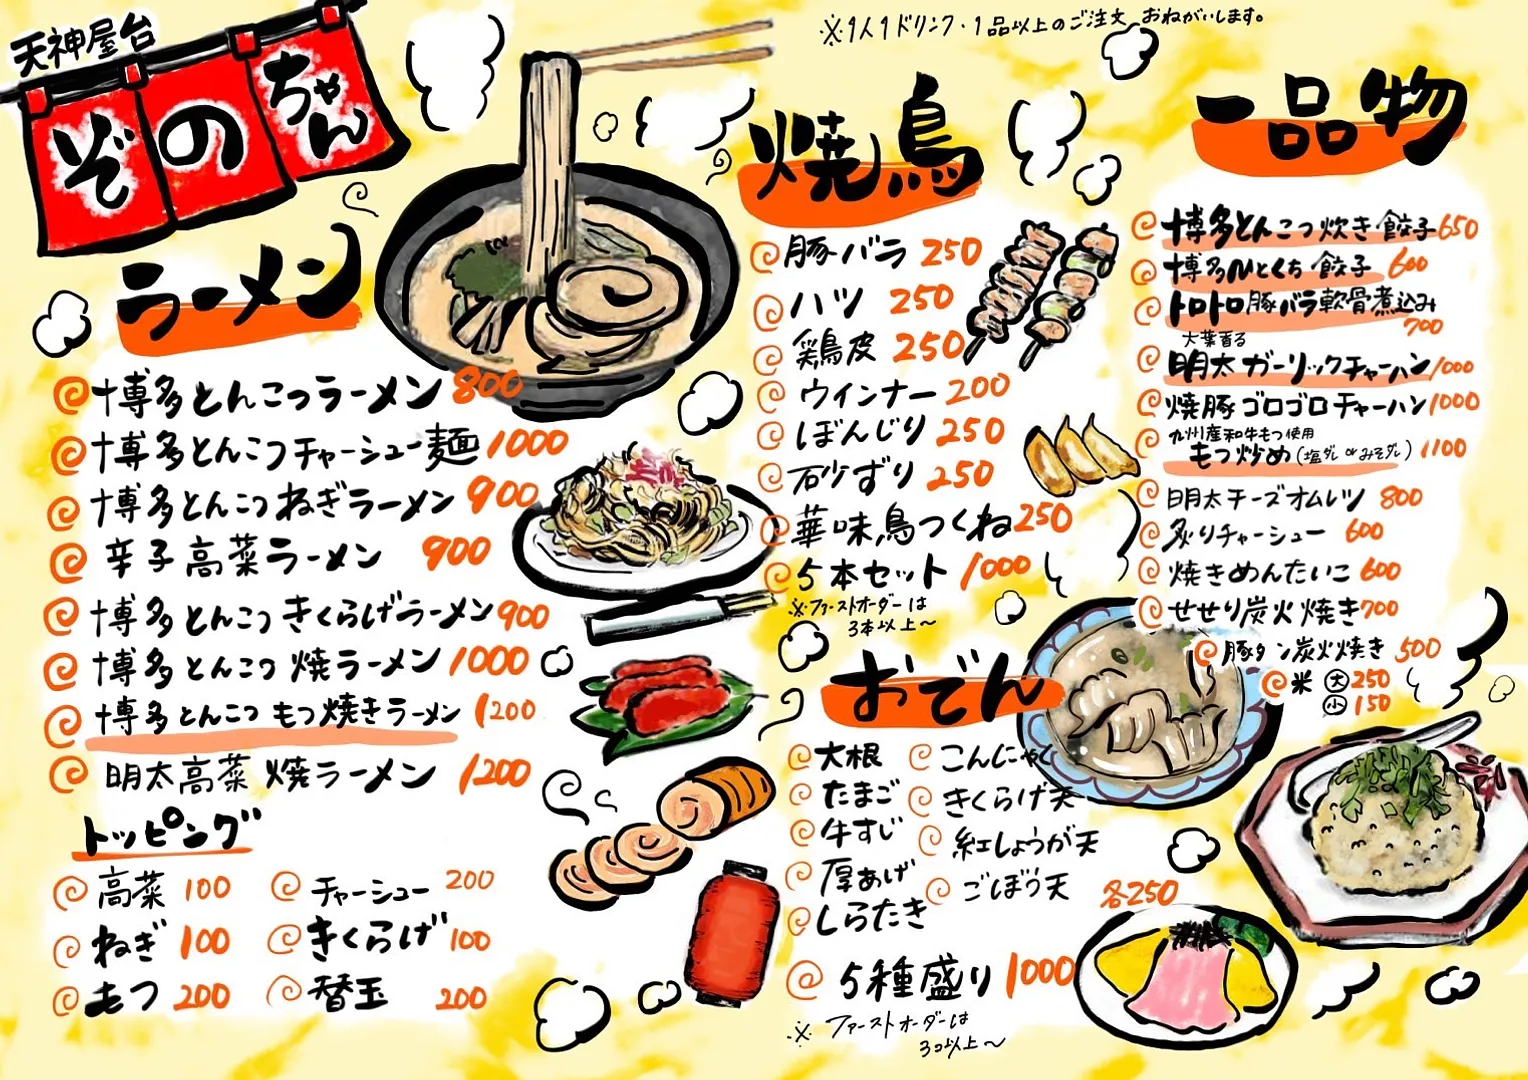 天神屋台
ぞのちゃん
※1人1ドリンク・1品以上のご注文、おねがいします。
ラーメン
博多とんこつラーメン 800
博多とんこつチャーシュー麺 1000
博多とんこつねぎラーメン 900
辛子高菜ラーメン 900
博多とんこつきくらげラーメン 900
博多とんこつ焼ラーメン 1000
博多とんこつもつ焼きラーメン 1200
明太高菜焼ラーメン 1200
トッピング
高菜 100
ねぎ 100
もつ 200
チャーシュー 200
きくらげ 100
替玉 200
焼鳥
豚バラ 250
ハツ 250
鶏皮 250
ウインナー 200
ぼんじり 250
砂ずり 250
華味鳥つくね 250
5本セット 1000
※ファーストオーダーは
3本以上〜
おでん
大根
たまご
牛すじ
厚あげ
しらたき
こんにゃく
きくらげ天
紅しょうが天
ごぼう天
各250
5種盛り 1000
※ファーストオーダーは
3コ以上〜
一品物
博多とんこつ炊き餃子 650
博多ひとくち餃子 600
トロトロ豚バラ軟骨煮込み
700
大葉香る
明太ガーリックチャーハン 1000
焼豚ゴロゴロチャーハン 1000
九州産和牛もつ使用
もつ炒め(塩ダレ or みそダレ) 1100
明太チーズオムレツ 800
炙りチャーシュー 600
焼きめんたいこ 600
せせり炭火焼き 700
豚タン炭火焼き 500
米 大 250
小 150